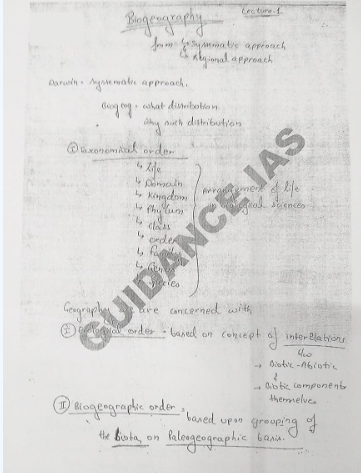 Lecture-1
Biogeography
from ↳ Systematic approach
↳ Regional approach
Darwin - systematic approach.
what distribution
why such distribution
Taxonomical order
↳ Life
↳ Domain
↳ Kingdom
↳ Phylum
↳ class
↳ order
↳ Family
↳ Genus
↳ Species
arrangement of life
in biological sciences
GUIDANCE IAS
Geography we are concerned with
I Ecological order - based on concept of interrelations
b/w
→ Biotic-Abiotic
&
→ Biotic components
themselves
II Biogeographic order - based upon grouping of
the Biota, on Paleogeographic basis.